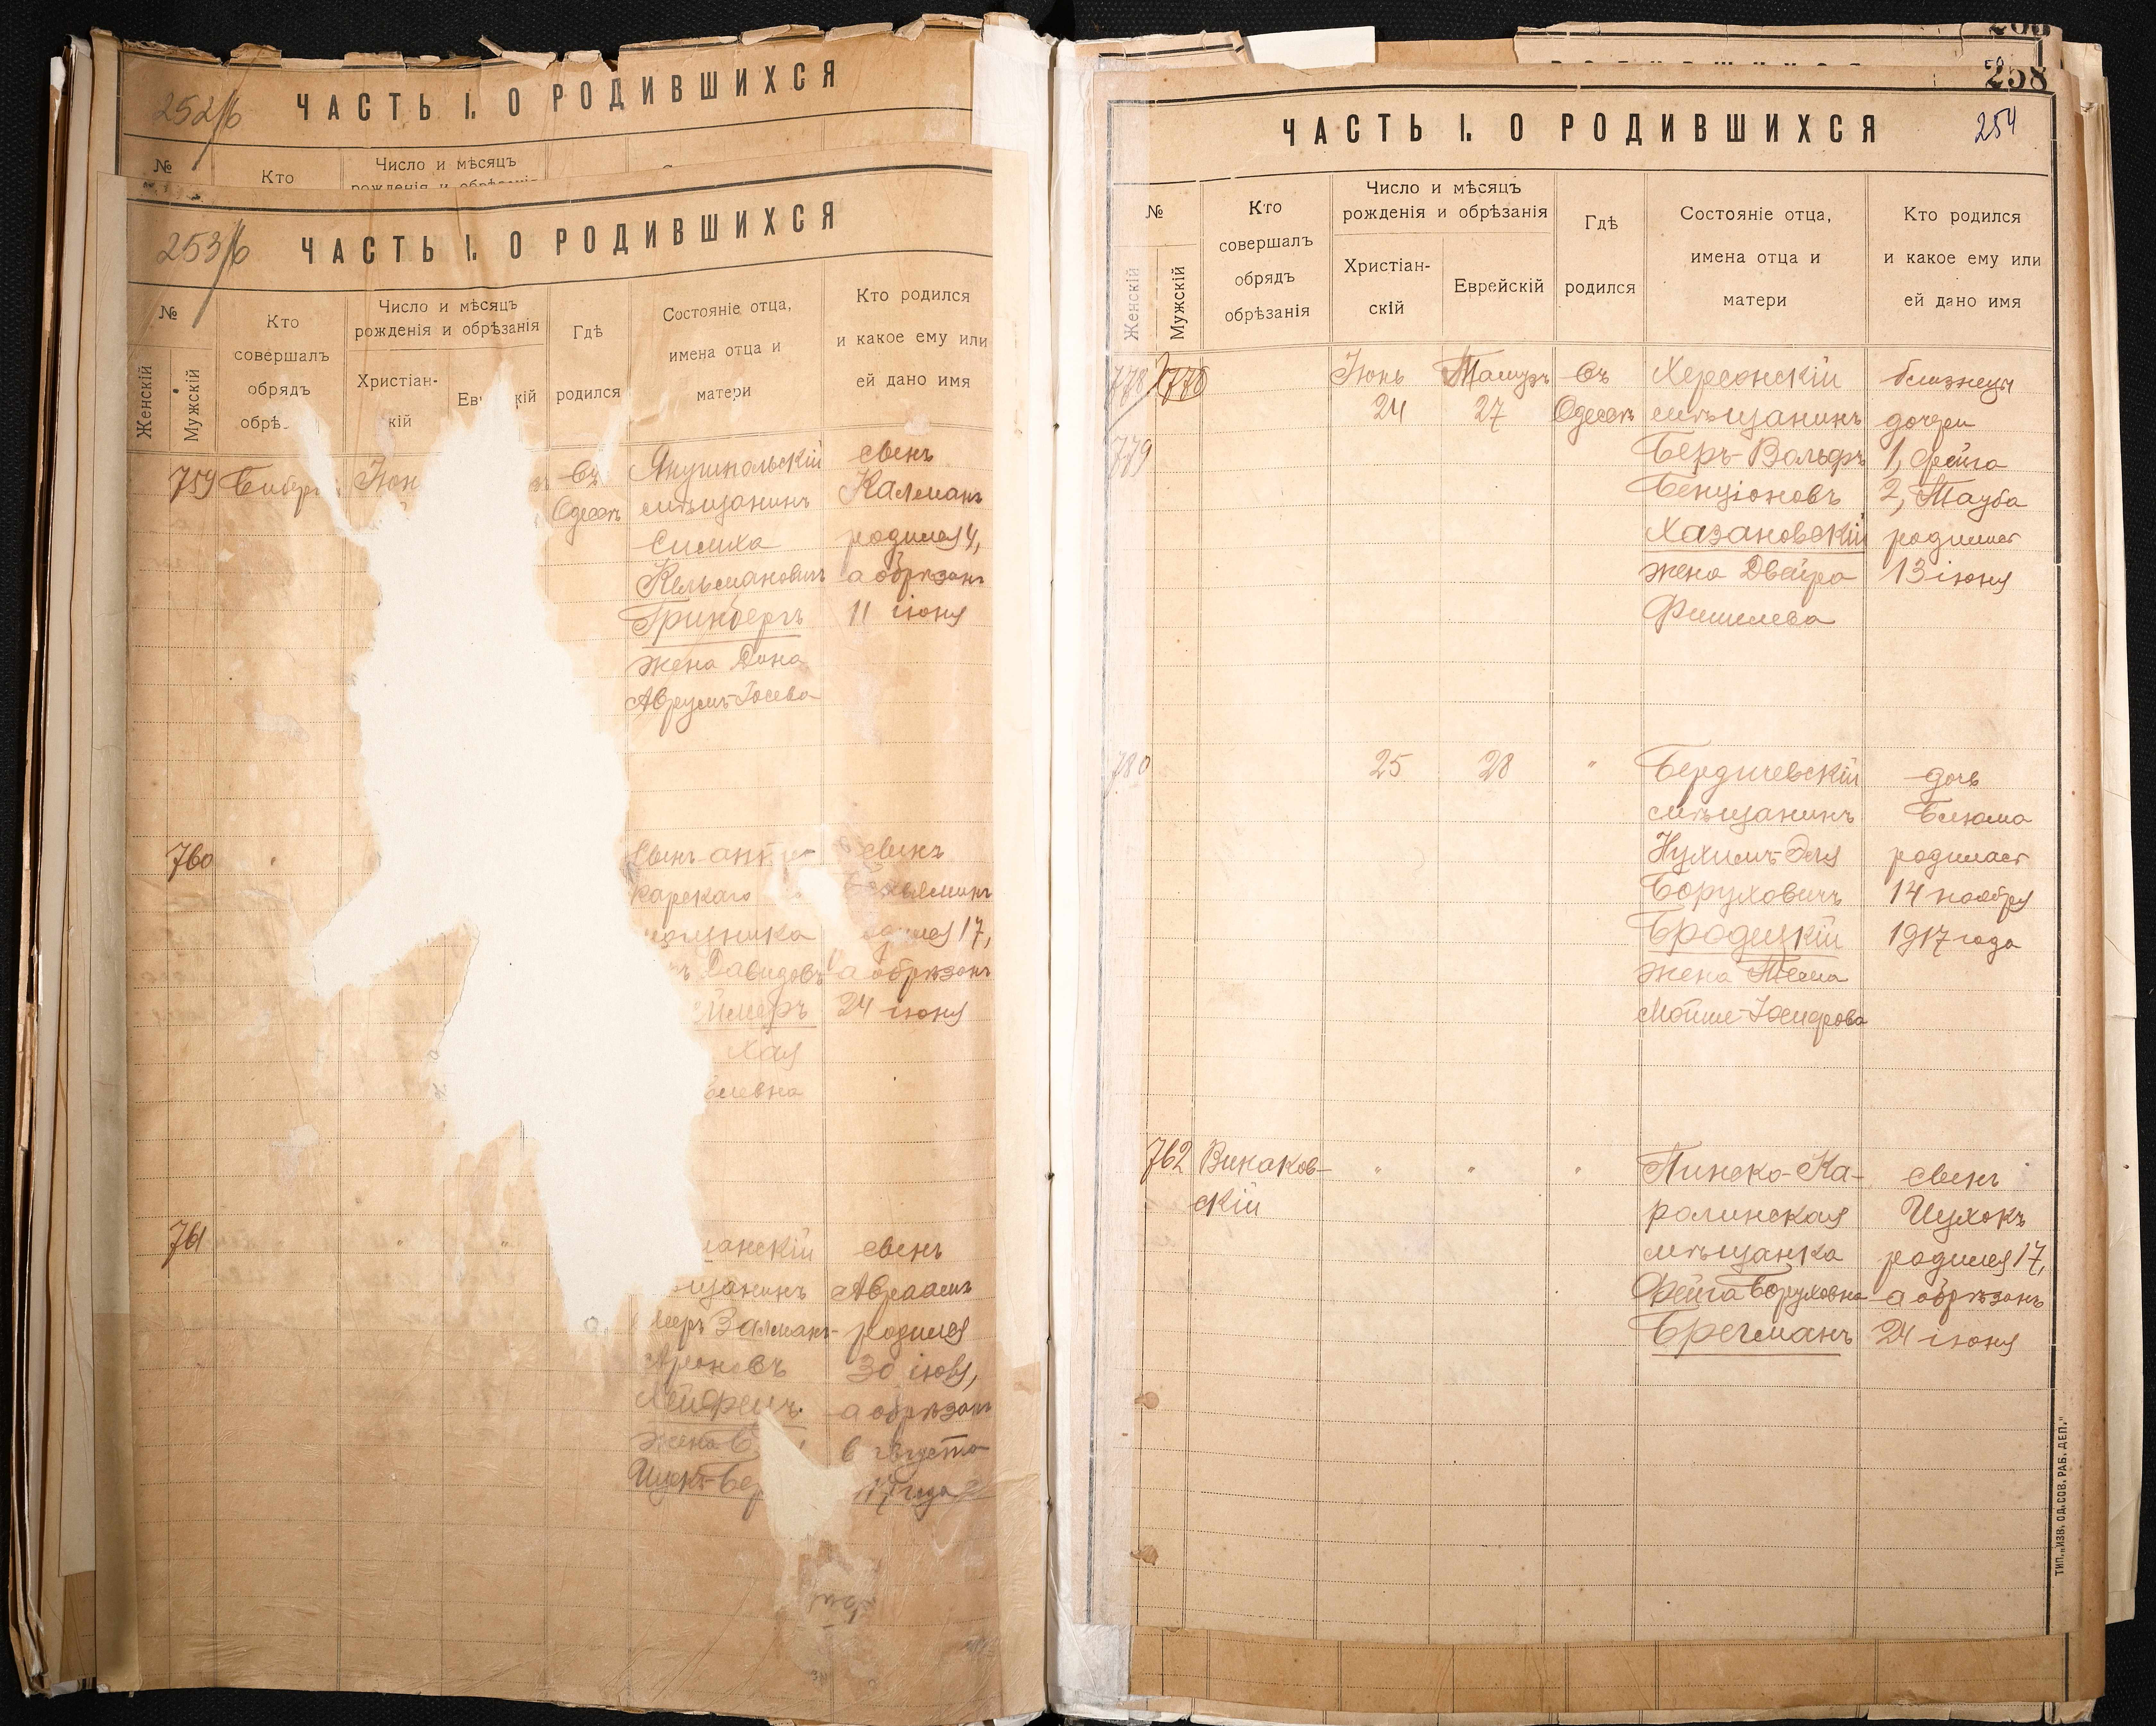 252/б
ЧАСТЬ I. О РОДИВШИХСЯ
№
Кто
Число и мѣсяцъ
253/б
ЧАСТЬ I. О РОДИВШИХСЯ
№
Женскій
Мужскій
Кто
совершалъ
обрядъ
обрѣ
Число и мѣсяцъ
рожденія и обрѣзанія
Христіан-
кій
Ев кій
Гдѣ
родился
Состояніе отца,
имена отца и
матери
Кто родился
и какое ему или
ей дано имя
759
Іюн
въ
Одессѣ
мѣщанинъ
Симха
Кельмановичъ
Гринбергъ
жена Дина
Аврумъ-Іосева
сынъ
Калманъ
родился 4,
а обрѣзанъ
11 іюня
760
Сынъ
карскаго
Давидовъ
хая
сынъ
17,
а обрѣзанъ
24 іюня
761
анскій
щанинъ
Меръ Залманъ-
Ароновъ
жена
сынъ
Авраамъ
родился
30
а обрѣзанъ
августа
года
258
254
ЧАСТЬ I. О РОДИВШИХСЯ
№
Женскій
Мужскій
Кто
совершалъ
обрядъ
обрѣзанія
Число и мѣсяцъ
рожденія и обрѣзанія
Христіан-
скій
Еврейскій
Гдѣ
родился
Состояніе отца,
имена отца и
матери
Кто родился
и какое ему или
ей дано имя
778
779
Іюнь
24
Тамузъ
27
въ
Одессѣ
Херсонскій
мѣщанинъ
Беръ-Вольфъ
Бенціоновъ
Хазановскій
жена Двейра
Фишилева
близнецы
дочери
1, Фейга
2, Тауба
родились
13 іюня
780
25
28
"
Бердичевскій
мѣщанинъ
Нухимъ-Эля
Боруховичъ
Бродецкій
жена Тема
Мойше-Іосифова
дочь
Блюма
родилась
14 ноября
1917 года
762
Викаков-
скій
"
"
"
Пинско-Ка-
ролинская
мѣщанка
Фейга Боруховна
Брегманъ
сынъ
Ицхокъ
родился 17,
а обрѣзанъ
24 іюня
ТИП. „ИЗВ. ОД. СОВ. РАБ. ДЕП."